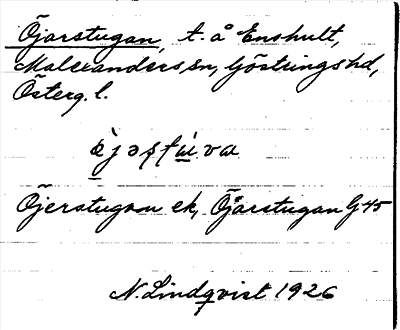 Öjarstugan, t. å Enshult,
Malexanders sn, Göstrings hd,
Österg. l.
ò̱jəsṭu̱̇.va
Öjerstugan ek, Öjarstugan G 45
N. Lindqvist 1926